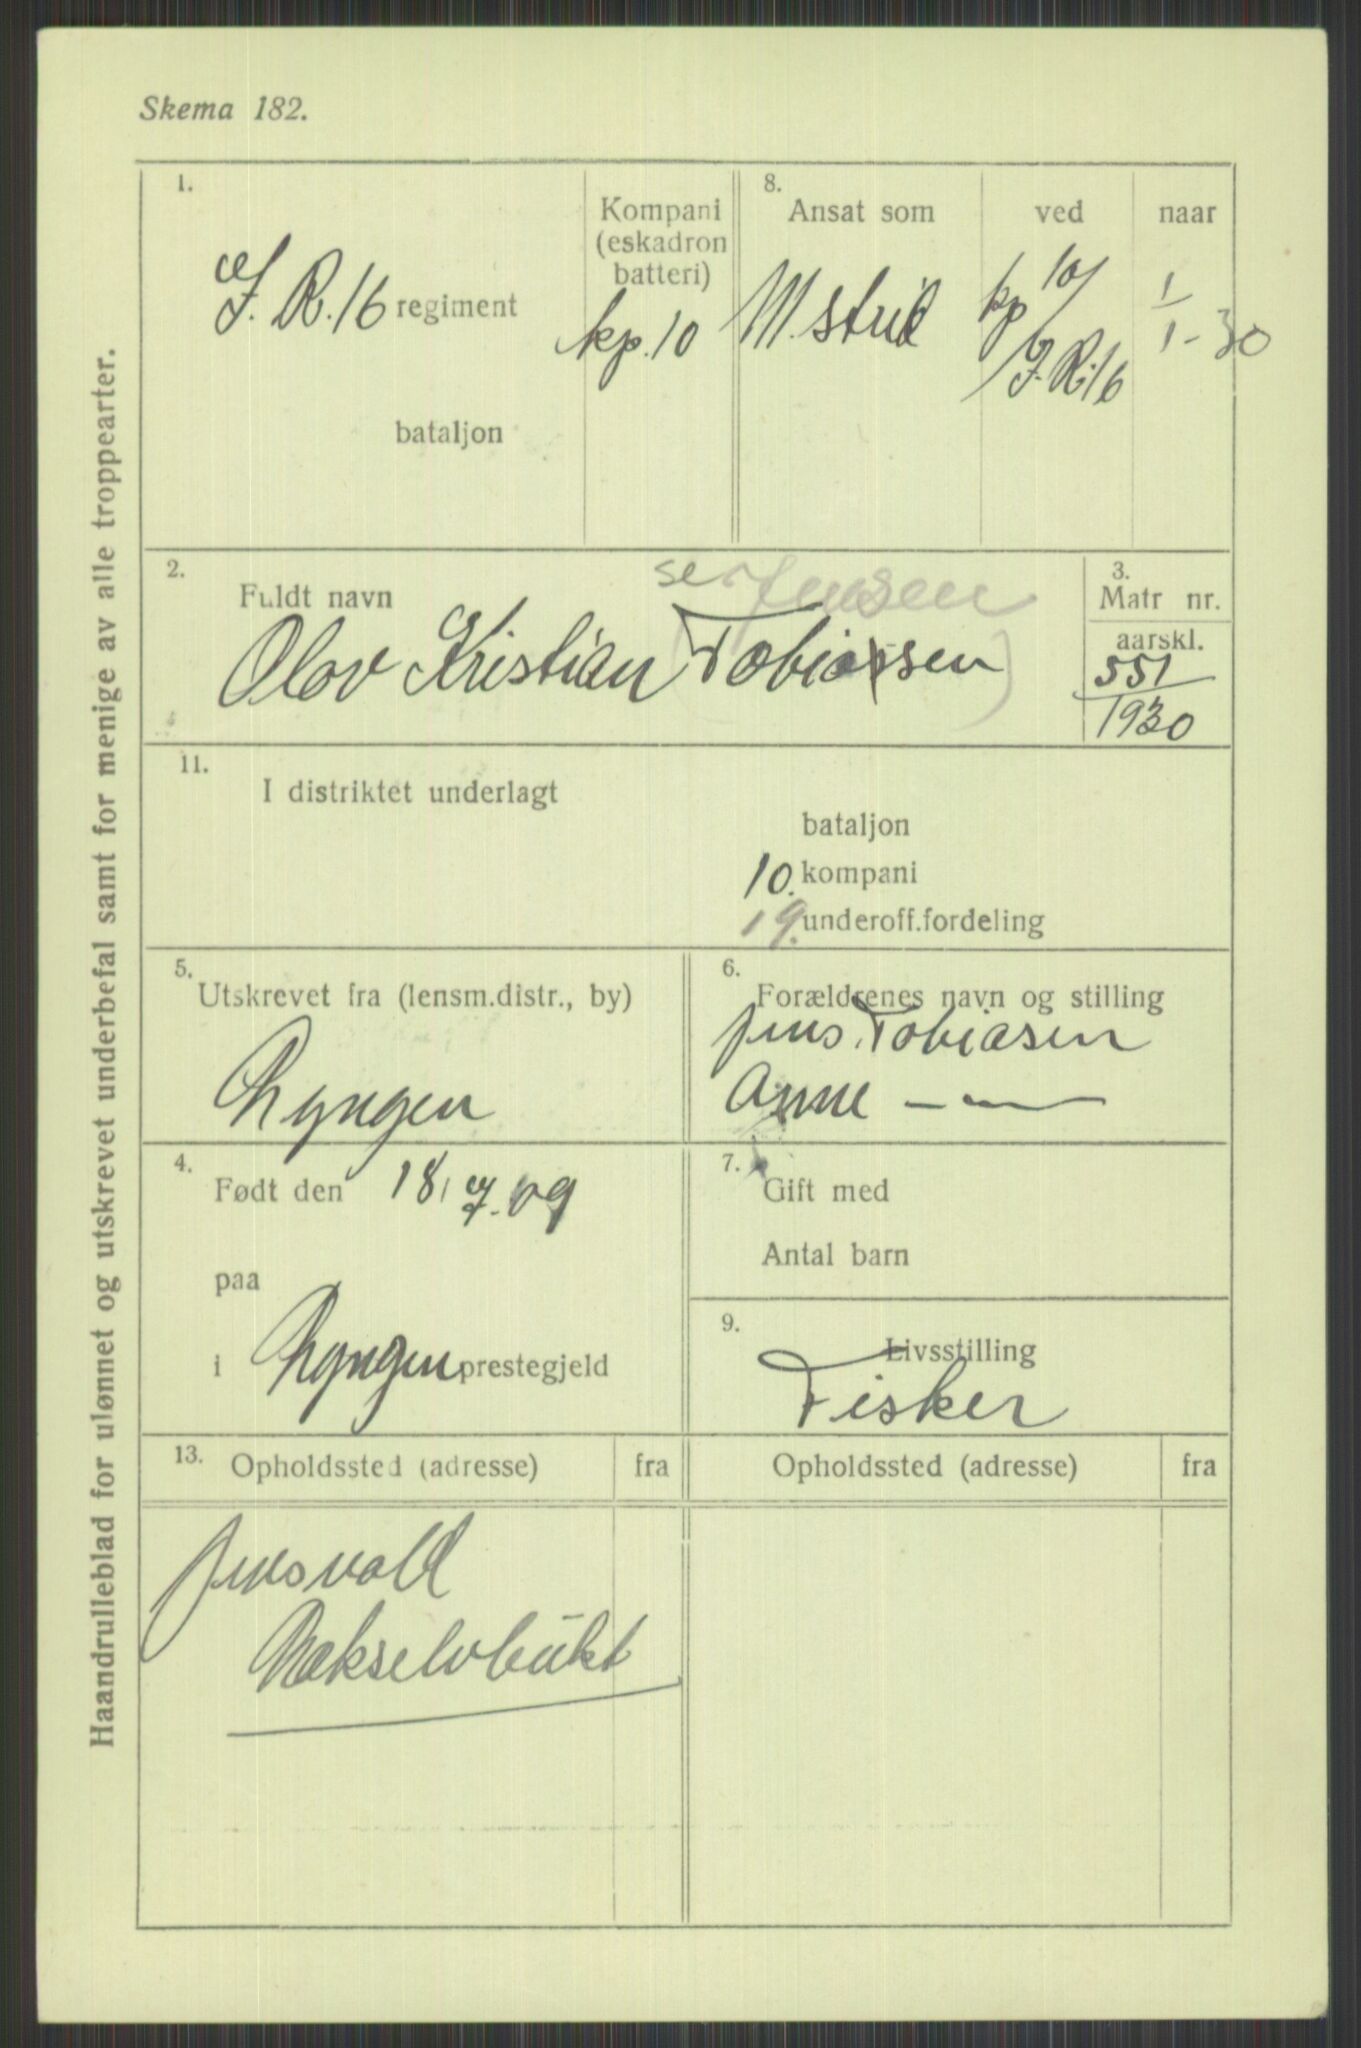 Skema 182.
Haandrulleblad for ulønnet og utskrevet underbefal samt for menige av alle troppearter.
1.
I. R. 16 regiment
bataljon
Kompani
(eskadron
batteri)
kp. 10
8.
Ansat som
M. strid
ved
kp 10/
I. R. 16
naar
1/1-30
2.
Fuldt navn
se Jensen
Olov Kristian (Tobiassen)
3.
Matr nr.
aarskl.
551
1930
11.
I distriktet underlagt
bataljon
10. kompani
19. underoff.fordeling
5.
Utskrevet fra (lensm.distr., by)
Lyngen
6.
Forældrenes navn og stilling
Jens Tobiasen
Anne — —
4.
Født den 18. 7. 09
paa
i Lyngen prestegjeld
7.
Gift med
Antal barn
9.
Livsstilling
Fisker
13.
Opholdssted (adresse) fra Opholdssted (adresse) fra
Jensvold
Rakselvbukt